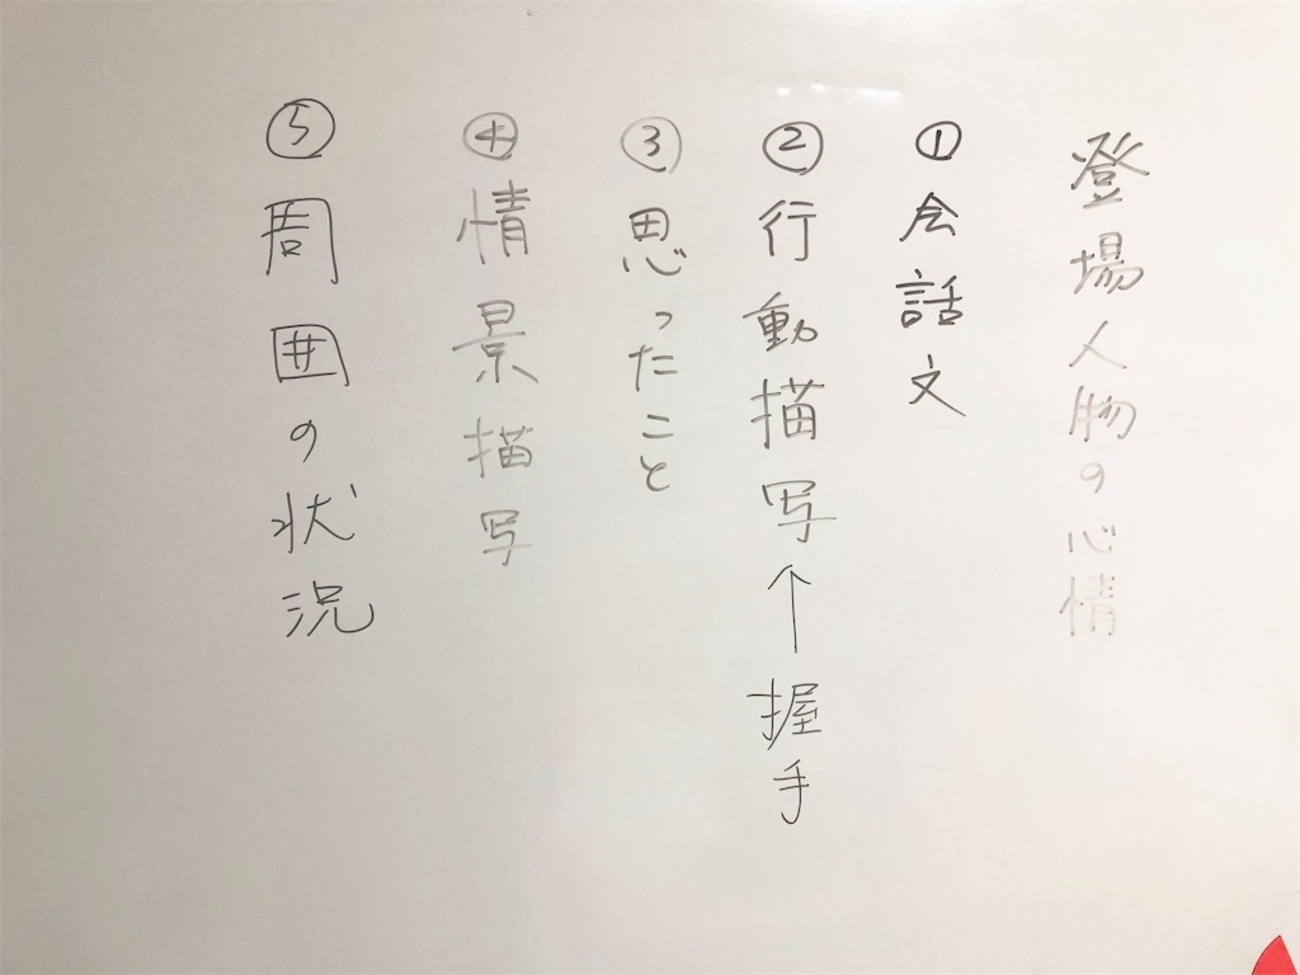 登場人物の心情
①会話文
②行動描写↑握手
③思ったこと
④情景描写
⑤周囲の状況